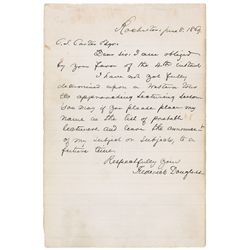 Rochester, June 8. 1869.
Dear Sir: I am obliged
by your favor of the 4th instant.
I have not yet fully
determined upon a Western tour
the approaching Lecturing Season
You may if you please place my
name on the list of probable
lecturers and leave the announce
of my subject or subjects, to a
future time.
Respectfully yours
Frederick Douglass